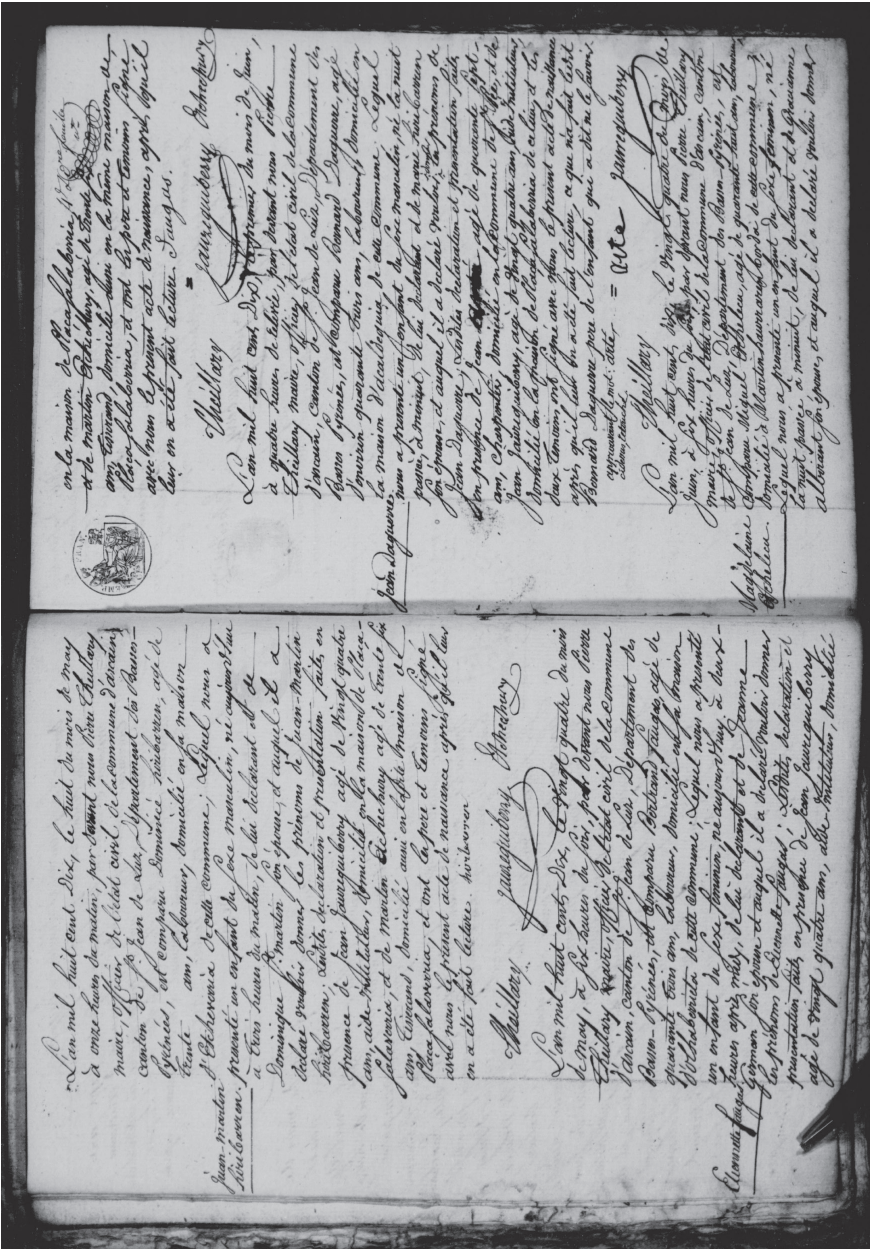 L'an mil huit cent Dix, le huit du mois de may
à onze heures du matin, par devant nous Pierre Theillary
maire, officier de l'état civil de la commune d'ascain,
canton de St jean de Luz, Département des Basses-
Pyrénées, est comparu Dominice hiribarren, agé de
trente ans, Laboureur, domicilié en la maison
juan-martin
hiribarren
d'Etcheverria de cette commune, Lequel nous a
presenté un enfant du sexe masculin, né aujourd'hui
à trois heures du matin, de lui declarant et de
Dominique St martin son épouse, et auquel il a
declaré vouloir donner les prénoms de juan-Martin
hiribarren; Lesdites declaration et presentation faites en
presence de jean jaureguiberry agé de vingt quatre
ans, aide instituteur, domicilié en la maison de Placa-
falesvoria, et de martin Etchechury agé de trente six
ans, Tisserand, domicilié aussi en ladite maison de
Placafalesvoria; et ont les père et temoins signé
avec nous le présent acte de naissance après qu'il leur
en a été fait lecture. hiribarren
Theillary jaureguiberry Etchechury
L'an mil huit cent Dix, le vingt quatre du mois
de may, à six heures du soir, par devant nous Pierre
Theillary maire, officier de l'état civil de la commune
d'ascain, canton de St jean de Luz, département des
Basses-Pyrénées, est comparu Bertrand fauges, agé de
quarante trois ans, Laboureur, domicilié en la maison
d'olhabarnits de cette commune; Lequel nous a presenté
un enfant du sexe feminin, né aujourd'huy, à deux-
Etiennette fauges
heures après midy, de lui declarant et de Jeanne
Germain son épouse et auquel il a declaré vouloir donner
les prénoms de Etiennette fauges; Lesdites declaration et
présentation faites en presence de Jean jaureguiberry
agé de vingt quatre ans, aide instituteur, domicilié
en la maison de Placafalesvoria
et de martin Etchechury, agé de trente six
ans, Tisserand, domicilié aussi en la même maison de
Placafalesvoria, et ont les père et temoins signé
avec nous le présent acte de naissance, après, qu'il
leur en a été fait lecture. fauges.
Theillary jaureguiberry Etchechury
L'an mil huit cent, Dix, le premier du mois de juin,
à quatre heures de relevée, par devant nous Pierre
Theillary maire, officier de l'état civil de la commune
d'ascain, canton de St jean de Luz, Département des
Basses Pyrénées, est comparu Bernard Daguerre, agé
d'environ quarante trois ans, laboureur, domicilié en
la maison de cette commune Lequel
jean Daguerre
nous a presenté un enfant du sexe masculin, né la nuit
passée, à minuit, de lui declarant et de marie hiribarren
son épouse, et auquel il a declaré vouloir donner les prénoms de
Jean Daguerre; Lesdites declaration et presentation faites
en presence de jean agé de quarante sept-
ans, charpentier, domicilié en la commune de et de
jean jaureguiberry, agé de vingt quatre ans, aide instituteur,
domicilié en la maison de Placafalesvoria de ce lieu; et les
deux temoins ont signé avec nous le présent acte de naissance
après qu'il leur en a été fait lecture, ce que n'a fait ledit
Bernard Daguerre pere de l'enfant qui a dit ne le savoir
approuvant le mot: été,
Theillary = jaureguiberry
L'an mil huit cent, dix le vingt quatre du mois de
juin, à six heures du soir par devant nous Pierre Theillary
maire, officier de l'état civil de la commune d'ascain, canton
de St jean de Luz, département des Basses Pyrénées, est
Magdelaine
Etchelecu
comparu Miguel Etchelecu, agé de quarante huit ans, laboureur
domicilié à Martinhaurrenborda de cette commune
Lequel nous a presenté un enfant du sexe feminin, né
la nuit passée à minuit, de lui declarant et de Gracianne
alborant son épouse, et auquel il a declaré vouloir donner